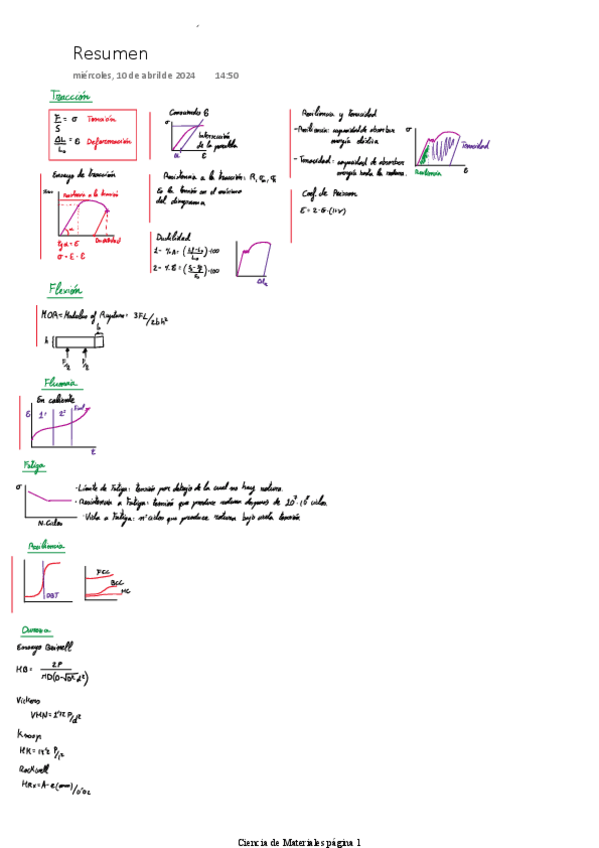 Resumen
miércoles, 10 de abril de 2024 14:50
Tracción
F/S = σ Tensión
ΔL/L₀ = ε Deformación
Ensayo de tracción
Resistencia a la tensión
Ductilidad
tg α = E
σ = E · ε
σ
ε
Intersección
de la paralela
Resistencia a la tracción: R,
Es la tensión en el máximo
del diagrama
Ductilidad
1 - % A =
· 100
2 - % E =
· 100
Resiliencia y tenacidad
- Resiliencia: capacidad de absorber
energía elástica
- Tenacidad: capacidad de absorber
energía hasta la rotura.
σ
Tenacidad
Resiliencia
ε
Coef. de Poisson
E = 2 · G · (1+ν)
Flexión
MOR = Modulus of Rupture = 3FL/2bh²
b
h
F/2 F/2
Fluencia
En caliente
ε
1º 2º
t
Fatiga
σ
N. Ciclos
- Límite de Fatiga: tensión por debajo de la cual no hay rotura.
- Resistencia a Fatiga: tensión que produce rotura después de
ciclos.
- Vida a Fatiga: nº ciclos que produce rotura bajo cierta tensión.
Resiliencia
DBT
FCC
BCC
HC
Dureza
Ensayo Brinell
HB = 2P / πD(D-√D²-d²)
Vickers
VHN = 1'72 P/d²
Knoop
HK = 14'2 P/l²
Rockwell
HRx = A - e(mm)/0'02
Ciencia de Materiales página 1